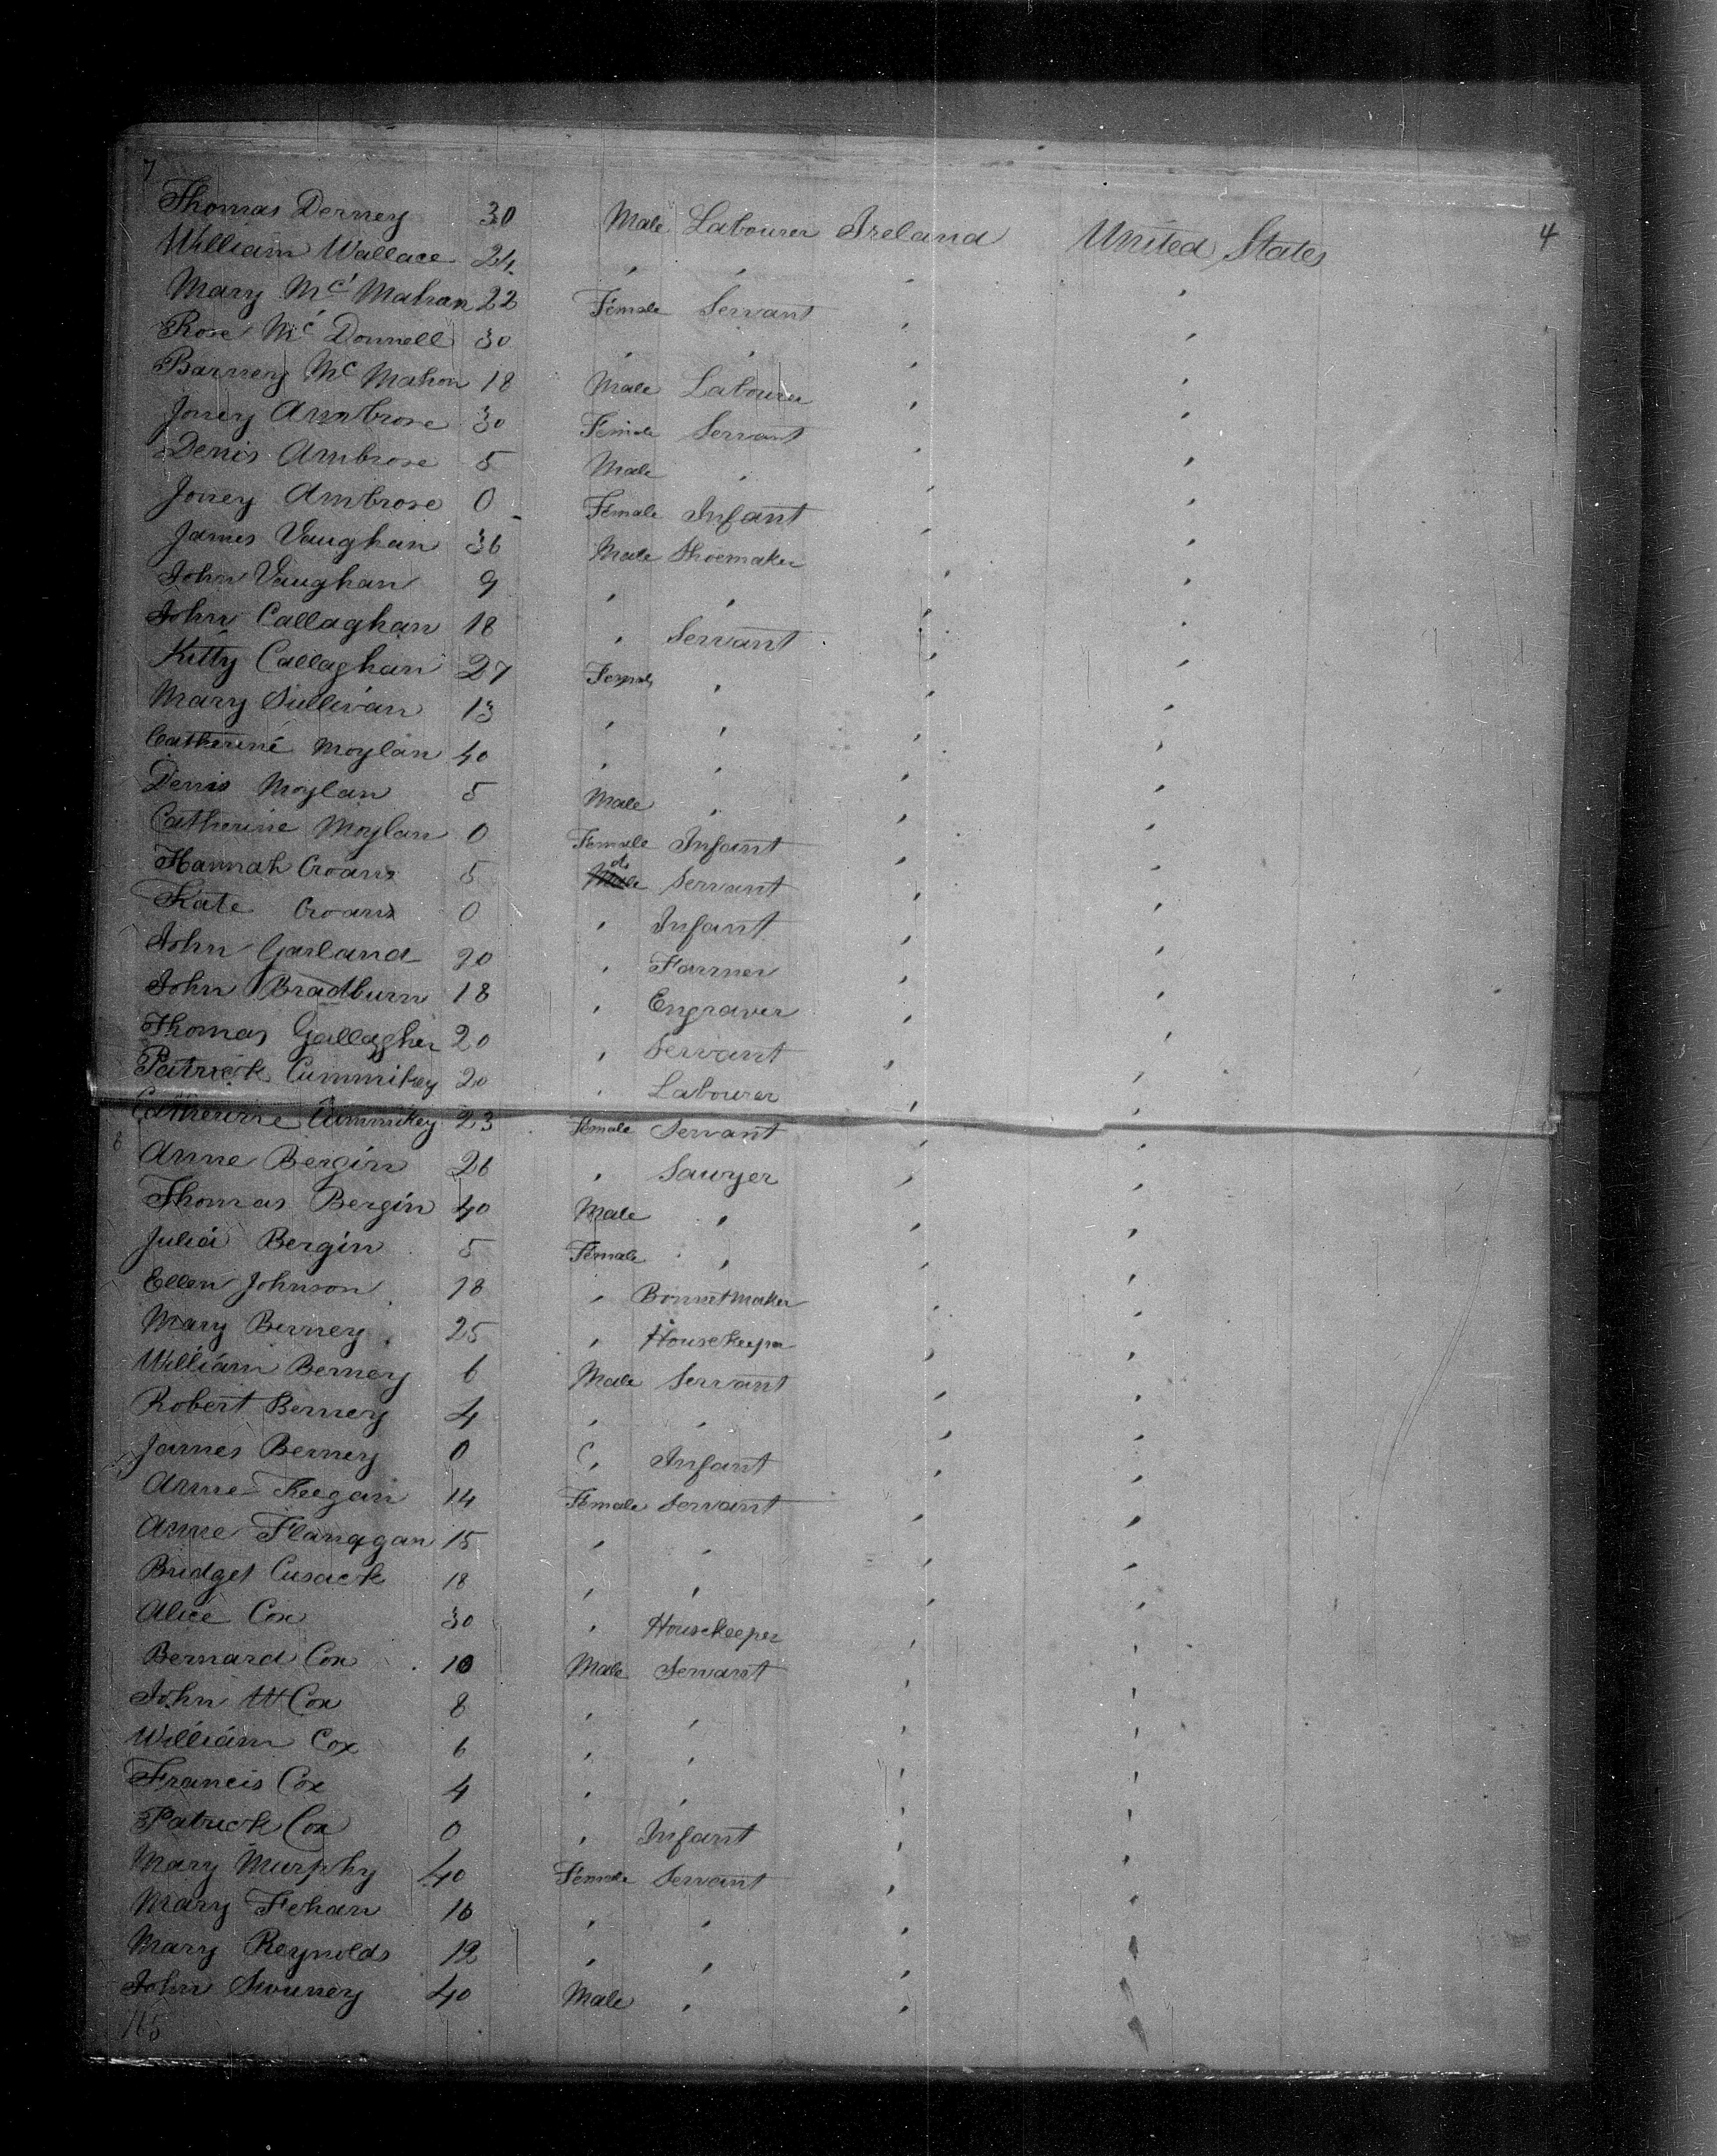 7
Thomas Derney 30 Male Labourer Ireland United States 4
William Wallace 24 , , , ,
Mary McMahan 22 Female Servant , ,
Rose McDonnell 30 , , , ,
Barney McMahon 18 Male Labourer , ,
Joney Ambrose 30 Female Servant , ,
Denis Ambrose 5 Male , , ,
Joney Ambrose 0 Female Infant , ,
James Vaughan 36 Male Shoemaker , ,
John Vaughan 9 , , , ,
John Callaghan 18 , Servant , ,
Kitty Callaghan 27 Female , , ,
Mary Sullivan 13 , , , ,
Catherine Moylan 40 , , , ,
Denis Moylan 5 Male , , ,
Catherine Moylan 0 Female Infant , ,
Hannah Croans 5 do Male Servant , ,
Kate Croans 0 , Infant , ,
John Garland 20 , Farmer , ,
John Bradburn 18 , Engraver , ,
Thomas Gallagher 20 , Servant , ,
Patrick Cummikey 20 , Labourer , ,
Catherine Cummikey 23 Female Servant , ,
8 Anne Bergin 26 , Sawyer , ,
Thomas Bergin 40 Male , , ,
Julia Bergin 5 Female , , ,
Ellen Johnson 18 , Bonnetmaker , ,
Mary Berney 25 , Housekeeper , ,
William Berney 6 Male Servant , ,
Robert Berney 4 , , , ,
James Berney 0 , Infant , ,
Anne Keegan 14 Female Servant , ,
Anne Flanagan 15 , , , ,
Bridget Cusack 18 , , , ,
Alice Cox 30 , Housekeeper , ,
Bernard Cox 10 Male Servant , ,
John Cox 8 , , , ,
William Cox 6 , , , ,
Francis Cox 4 , , , ,
Patrick Cox 0 , Infant , ,
Mary Murphy 40 Female Servant , ,
Mary Fehan 16 , , , ,
Mary Reynolds 12 , , , ,
John Swuney 40 Male , , ,
165